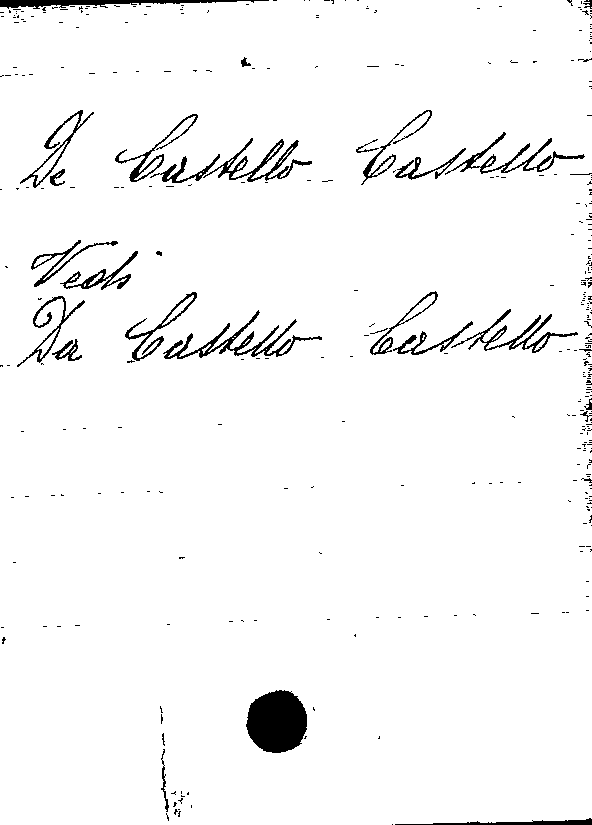 De Castello Castello
Vedi
Da Castello Castello